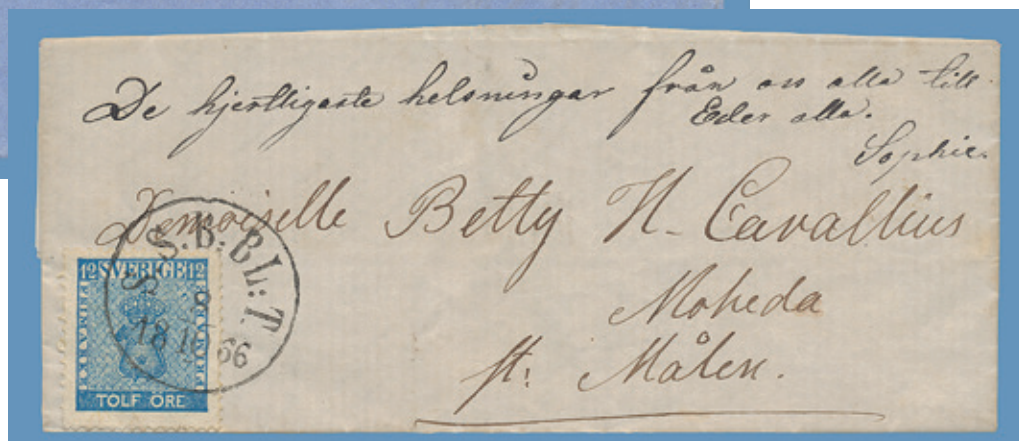 De hjertligaste helsningar från oss alla till
Eder alla.
Sophie.
Demoiselle Betty H. Cavallius
Moheda
st: Målen.
S. S. B: BL: T.
8
18 66
12 SVERIGE 12
TOLF ÖRE